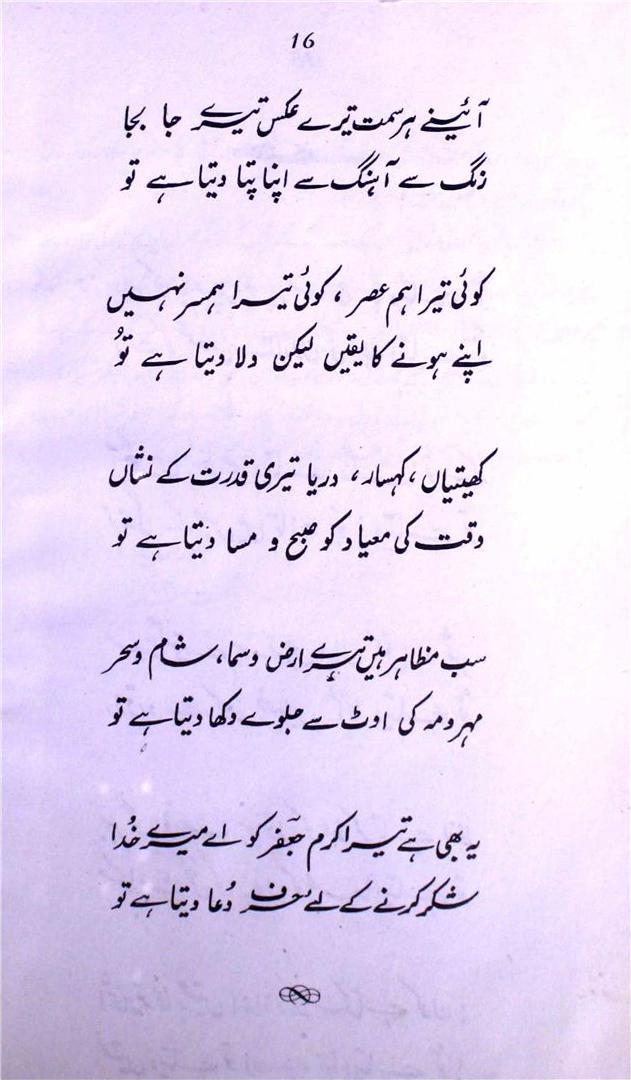 16
آئینے ہر سمت تیرے عکس تیرے جا بجا
رنگ سے آہنگ سے اپنا پتا دیتا ہے تو
کوئی تیرا ہم عصر ، کوئی تیرا ہمسر نہیں
اپنے ہونے کا یقیں لیکن دلا دیتا ہے توُ
کھیتیاں ، کہسار ، دریا تیری قدرت کے نشاں
وقت کی معیاد کو صبح و مسا دیتا ہے تو
سب مظاہر ہیں تیرے ارض و سما ، شام و سحر
مہر و مہ کی اوٹ سے جلوے دکھا دیتا ہے تو
یہ بھی ہے تیرا کرم جعفر کو اے میرے خُدا
شکر کرنے کے لیے حرف دُعا دیتا ہے تو